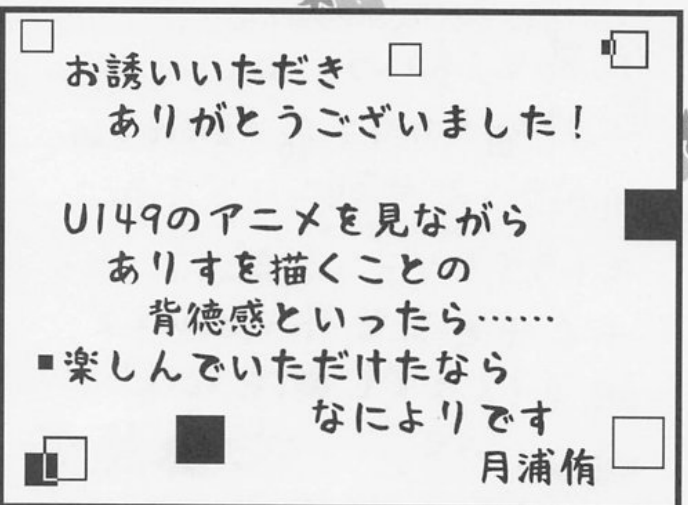 お誘いいただき
ありがとうございました!
U149のアニメを見ながら
ありすを描くことの
背徳感といったら……
楽しんでいただけたなら
なによりです
月浦侑